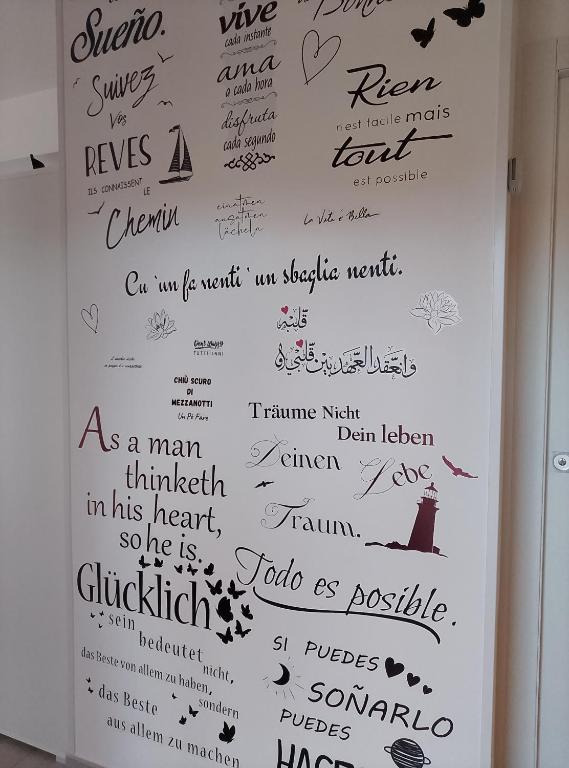 Sueño.
vive
cada instante
ama
a cada hora
disfruta
cada segundo
Suivez
Vos
REVES
ILS CONNAISSENT LE
Chemin
Rien
n'est facile mais
tout
est possible
einatmen
ausatmen
lächeln
La Vita é Bella
Cu 'un fa nenti 'un sbaglia nenti.
قلبه
وانعقد العهد بين قلبي و
TUTTI INNI
CHIÙ SCURO
DI
MEZZANOTTI
Un Pò Fare
As a man
thinketh
in his heart,
so he is.
Träume Nicht
Dein leben
Deinen Lebe
Traum.
Glücklich
sein
bedeutet
nicht,
das Beste von allem zu haben,
sondern
das Beste
aus allem zu machen
Todo es posible.
SI PUEDES
SOÑARLO
PUEDES